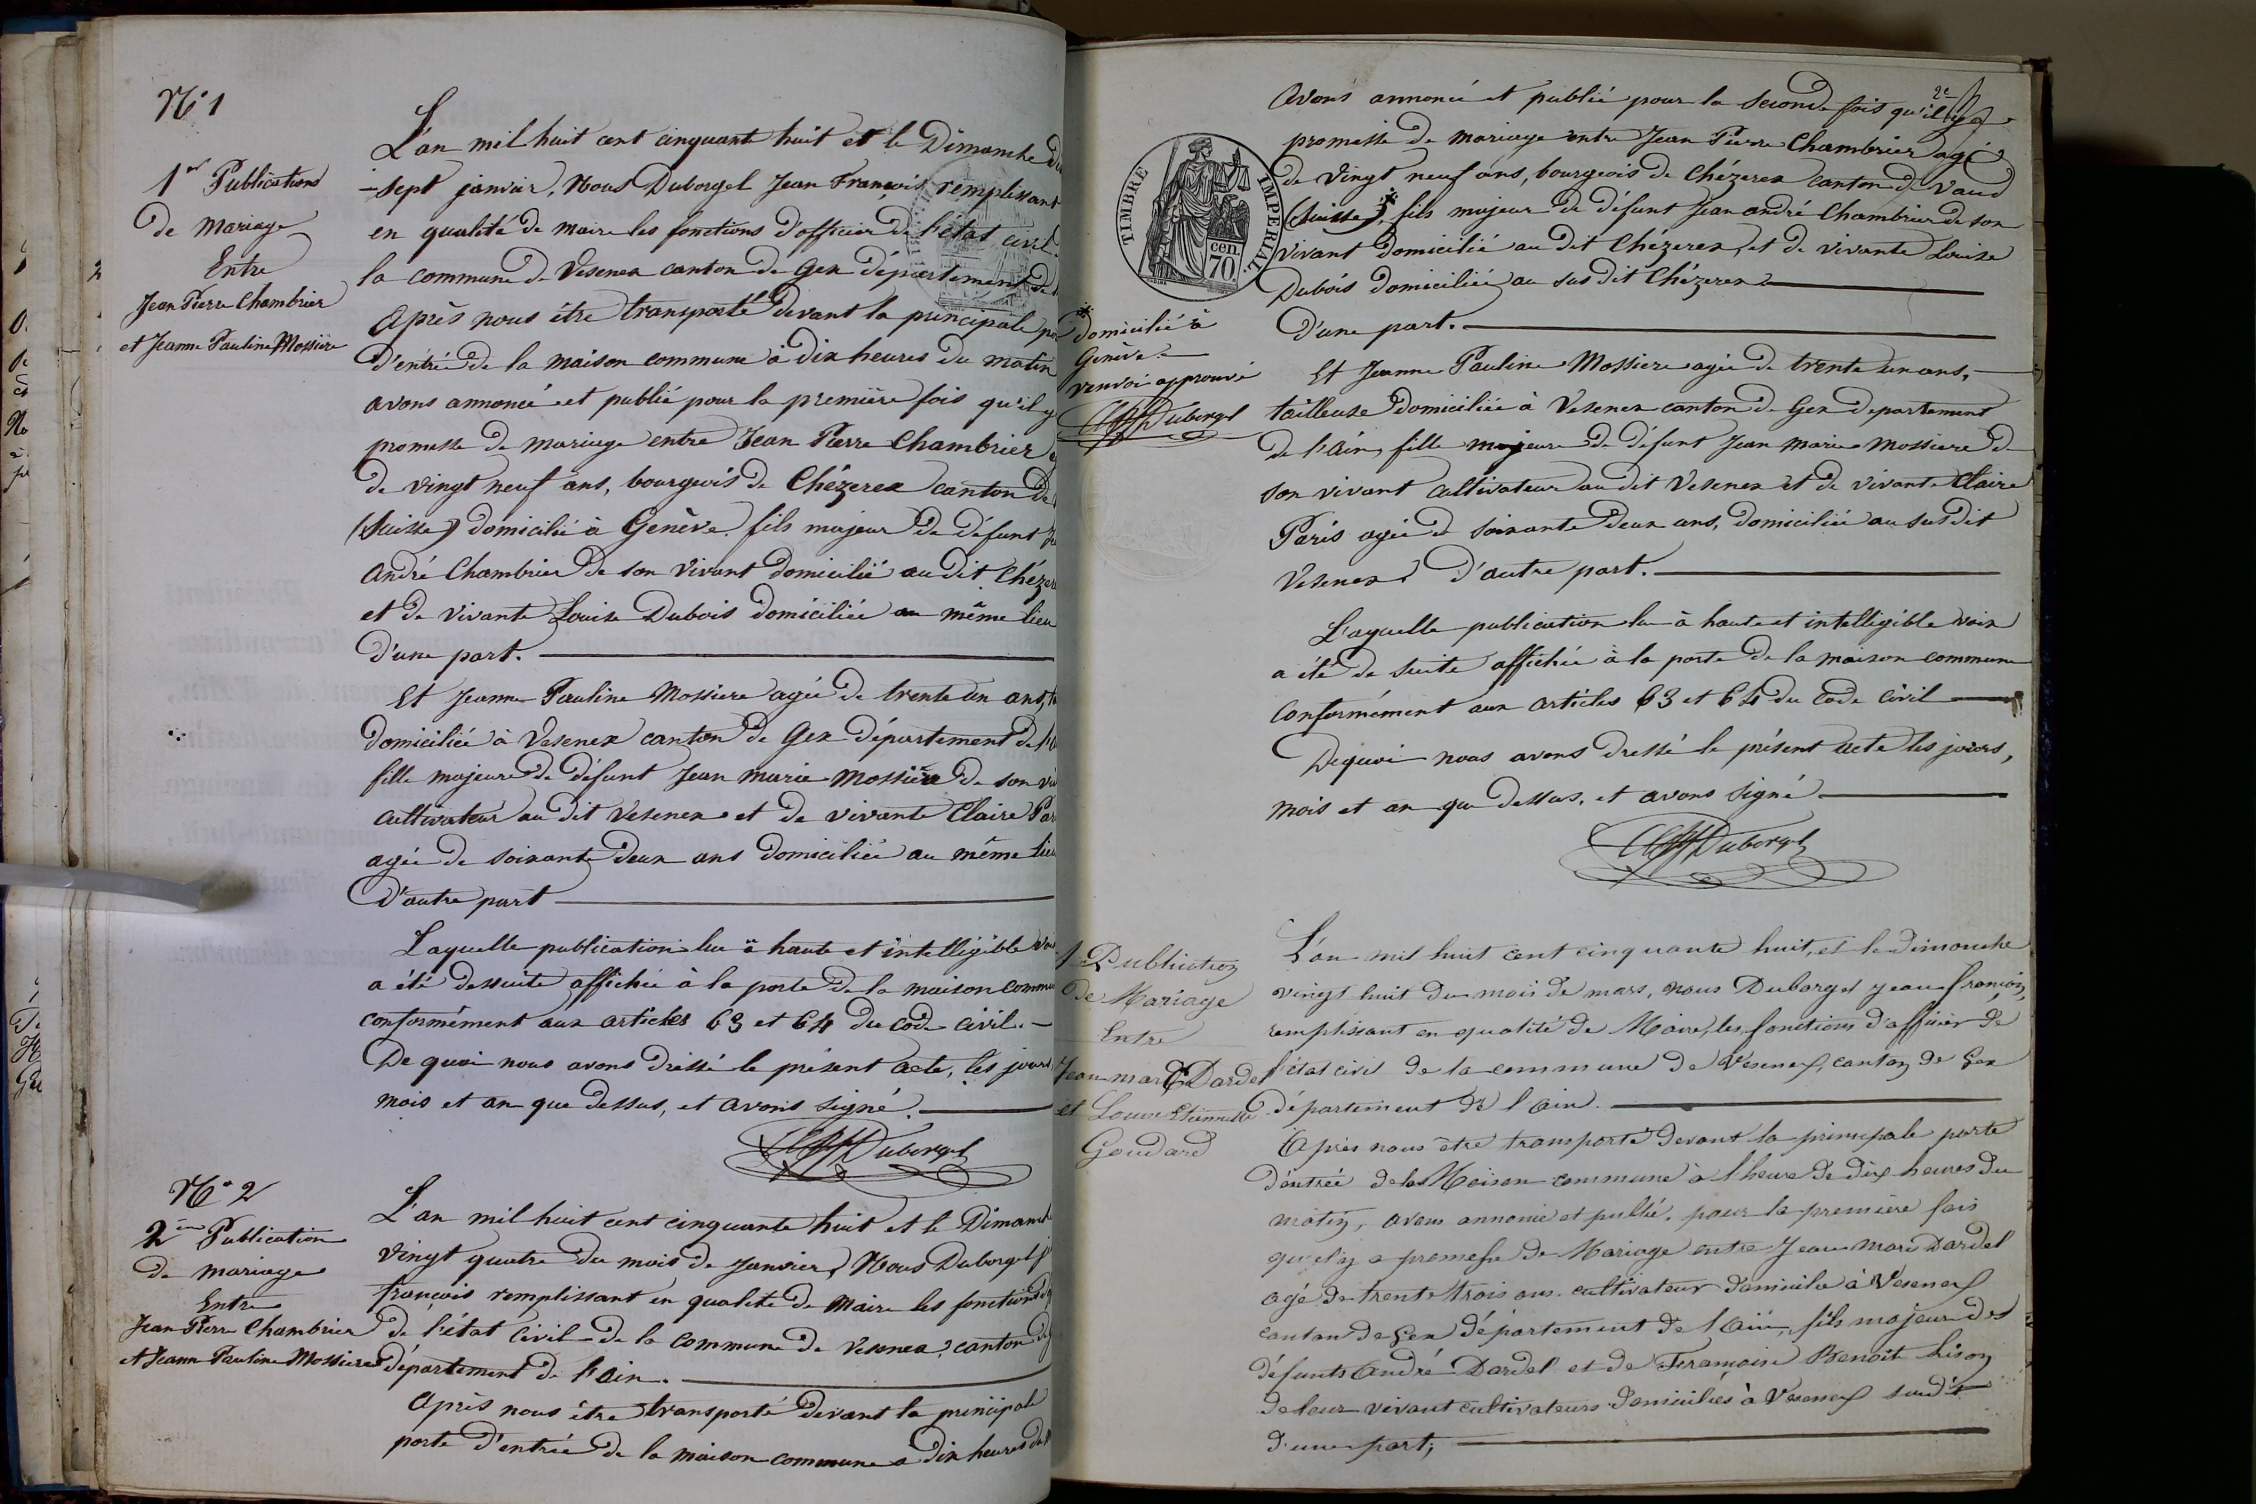 N° 1
1re Publications
de mariage
Entre
Jean Pierre Chambrier
et Jeanne Pauline Mossiere
L'an mil huit cent cinquante huit et le Dimanche dix
-sept janvier, Nous Duborgel Jean François, remplissant
en qualité de maire les fonctions d'officier de l'état civil
la commune de Vesenex canton de Gex département de
Après nous être transporté devant la principale
d'entrée de la maison commune à dix heures du matin
avons annoncé et publié pour la première fois qu'il y
promesse de mariage entre Jean Pierre Chambrier
de vingt neuf ans, bourgeois de Chézerex canton de
(Suisse) domicilié à Genève. fils majeur de défunt
André Chambrier de son vivant domicilié au dit
et de vivante Louise Dubois domiciliée au même lieu
d'une part.
Et Jeanne Pauline Mossiere agée de trente un ans,
domiciliée à Vesenex canton de Gex département de
fille majeure de défunt Jean marie Mossière de son
cultivateur au dit Vesenex et de vivante Claire
agée de soixante deux ans domiciliée au même lieu
d'autre part
Laquelle publication lue à haute et intelligible
a été dessuite affichée à la porte de la maison
conformément aux articles 63 et 64 du code civil.
De quoi nous avons dréssé le présent acte, les jours
mois et an que dessus, et avons signé.
Duborgel
N° 2
2me Publication
de mariage
Entre
Jean Pierre Chambrier
et Jeanne Pauline Mossiere
L'an mil huit cent cinquante huit et le Dimanche
vingt quatre du mois de Janvier, Nous Duborgel
françois remplissant en qualité de maire les fonctions
de l'état civil de la commune de Vesenex, canton
département de l'ain.
Après nous être transporté devant la principale
porte d'entrée de la maison commune à dix heures
2e
Avons annoncé et publié pour la seconde fois qu'il y a
promesse de mariage entre Jean Pierre Chambrier agé
de vingt neuf ans, bourgeois de Chézerex canton de Vaud
(Suisse)*, fils majeur de défunt Jean andré Chambrier de son
vivant domicilié au dit Chézerex, et de vivante Louise
Dubois domiciliée au sus dit Chézerex
d'une part.
TIMBRE IMPERIAL
70 cen.
* domicilié à
Genève.
renvoi approuvé
Duborgel
Et Jeanne Pauline Mossiere agée de trente un ans,
tailleuse domiciliée à Vesenex canton de Gex departement
de l'ain, fille majeure de défunt Jean marie Mossiere de
son vivant cultivateur au dit Vesenex et de vivante Claire
Paris agée de soixante deux ans, domiciliée au sus dit
Vesenex d'autre part.
L'aquelle publication lue à haute et intelligible voix
a été de suite affichée à la porte de la maison commune
conformément aux articles 63 et 64 du code civil
Dequoi nous avons dressé le présent acte les jours,
mois et an que dessus, et avons signé
Duborgel
1 Publication
de Mariage
Entre
Jean marie Dardel
et Louise Etiennette
Goudard
L'an mil huit cent cinquante huit, et le dimanche
vingt huit du mois de mars, nous Duborgel jean françois,
remplissant en qualité de Maire, les fonctions d'officier de
l'état civil de la commune de Vesenex, canton de Gex
département de l'ain.
Après nous être transporté devant la principale porte
d'entrée de la Maison commune à l'heure de dix heures du
matin, avons annoncé et publié, pour la première fois
qu'il y a promesse de Mariage entre Jean marie Dardel
agé de trente trois ans. cultivateur domicilié à Vesenex
canton de Gex département de l'Ain, fils majeur des
défunts André Dardel et de Françoise Benoîte
de leur vivant cultivateurs domiciliés à Vesenex susdit
d'une part;